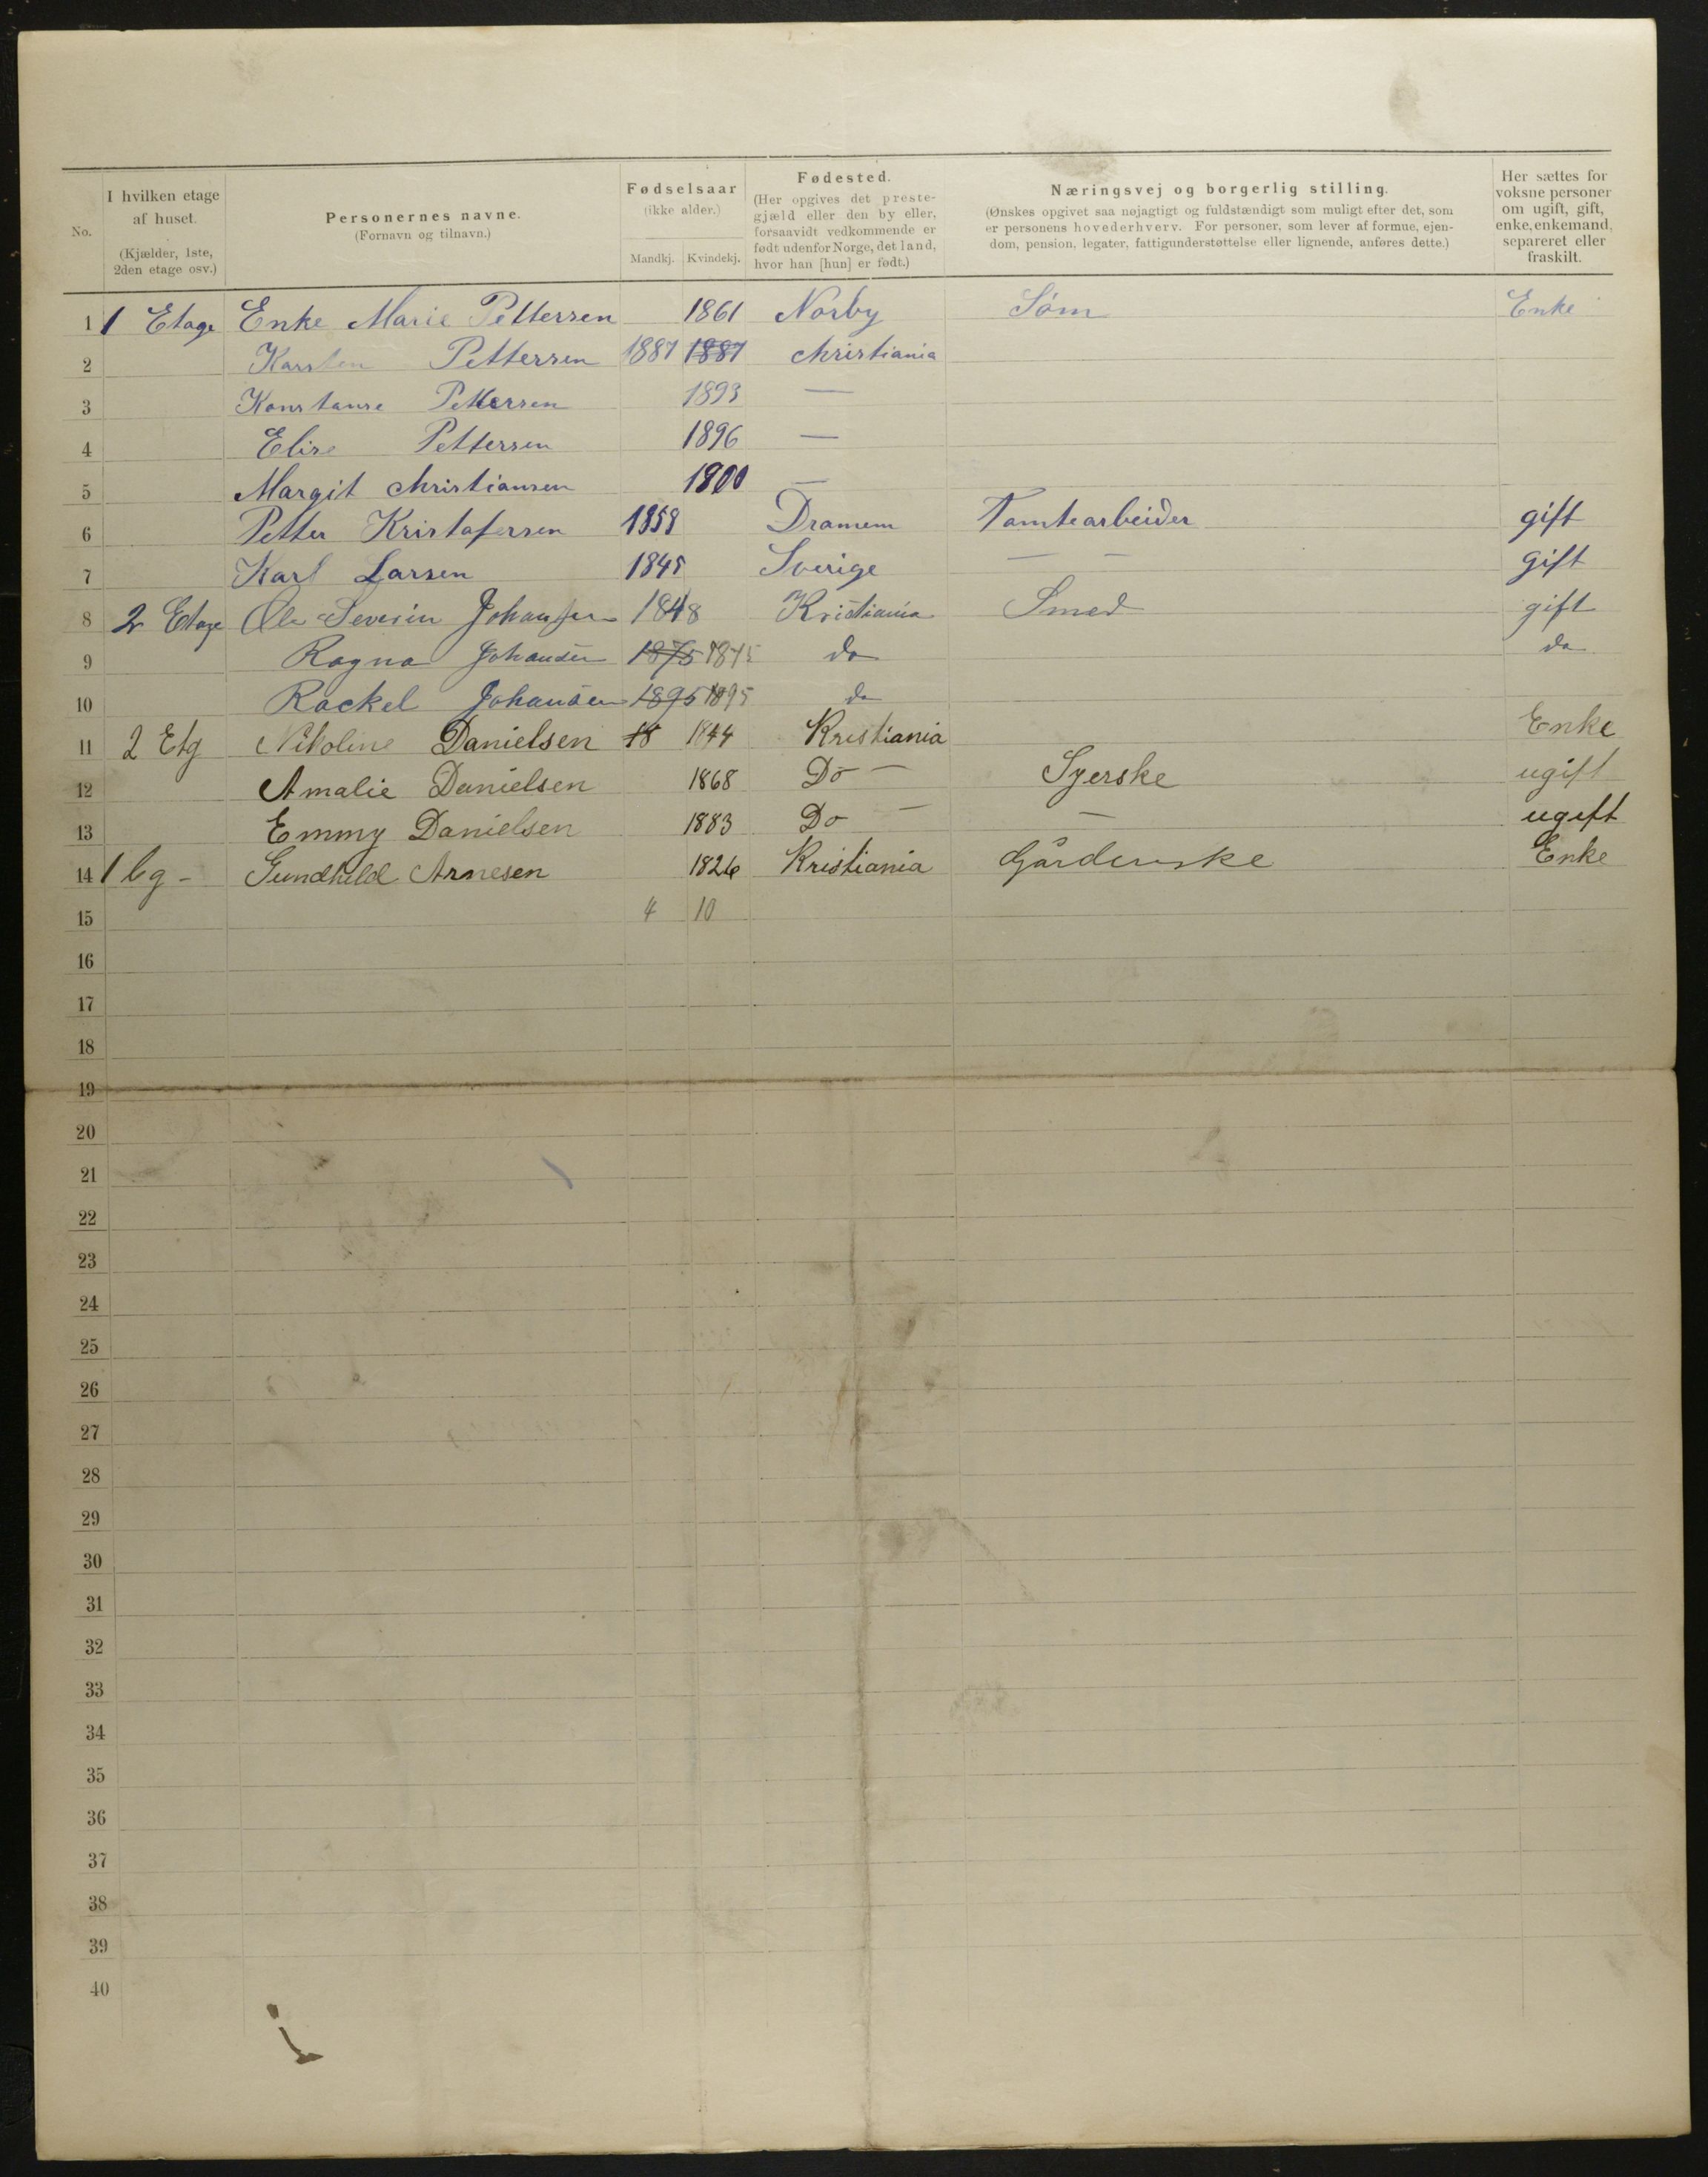 No.
I hvilken etage af huset.
(Kjælder, 1ste, 2den etage osv.)
Personernes navne.
(Fornavn og tilnavn.)
Fødselsaar
(ikke alder.)
Mandkj. Kvindekj.
Fødested.
(Her opgives det prestegjæld eller den by eller, forsaavidt vedkommende er født udenfor Norge, det land, hvor han [hun] er født.)
Næringsvej og borgerlig stilling.
(Ønskes opgivet saa nøjagtigt og fuldstændigt som muligt efter det, som er personens hovederhverv. For personer, som lever af formue, ejendom, pension, legater, fattigunderstøttelse eller lignende, anføres dette.)
Her sættes for voksne personer om ugift, gift, enke, enkemand, separeret eller fraskilt.
1 1 Etage Enke Marie Pettersen 1861 Norby Søm Enke
2 Karsten Pettersen 1887 1887 Christiania
3 Konstanse Pettersen 1893 —
4 Elise Pettersen 1896 —
5 Margit Christiansen 1900 —
6 Petter Kristafersen 1858 Dramem Tomtearbeider gift
7 Karl Larsen 1845 Sverige — — gift
8 2 Etage Ole Severin Johansen 1848 Kristiania Smed gift
9 Ragna Johansen 1875 1875 do do
10 Rackel Johansen 1895 1895 do
11 2 Etg Nikoline Danielsen 18 1844 Kristiania Enke
12 Amalie Danielsen 1868 Do — Syerske ugift
13 Emmy Danielsen 1883 Do — — ugift
14 1 Eg - Gundhild Arnesen 1826 Kristiania Gårdeierske Enke
15 4 10
16
17
18
19
20
21
22
23
24
25
26
27
28
29
30
31
32
33
34
35
36
37
38
39
40